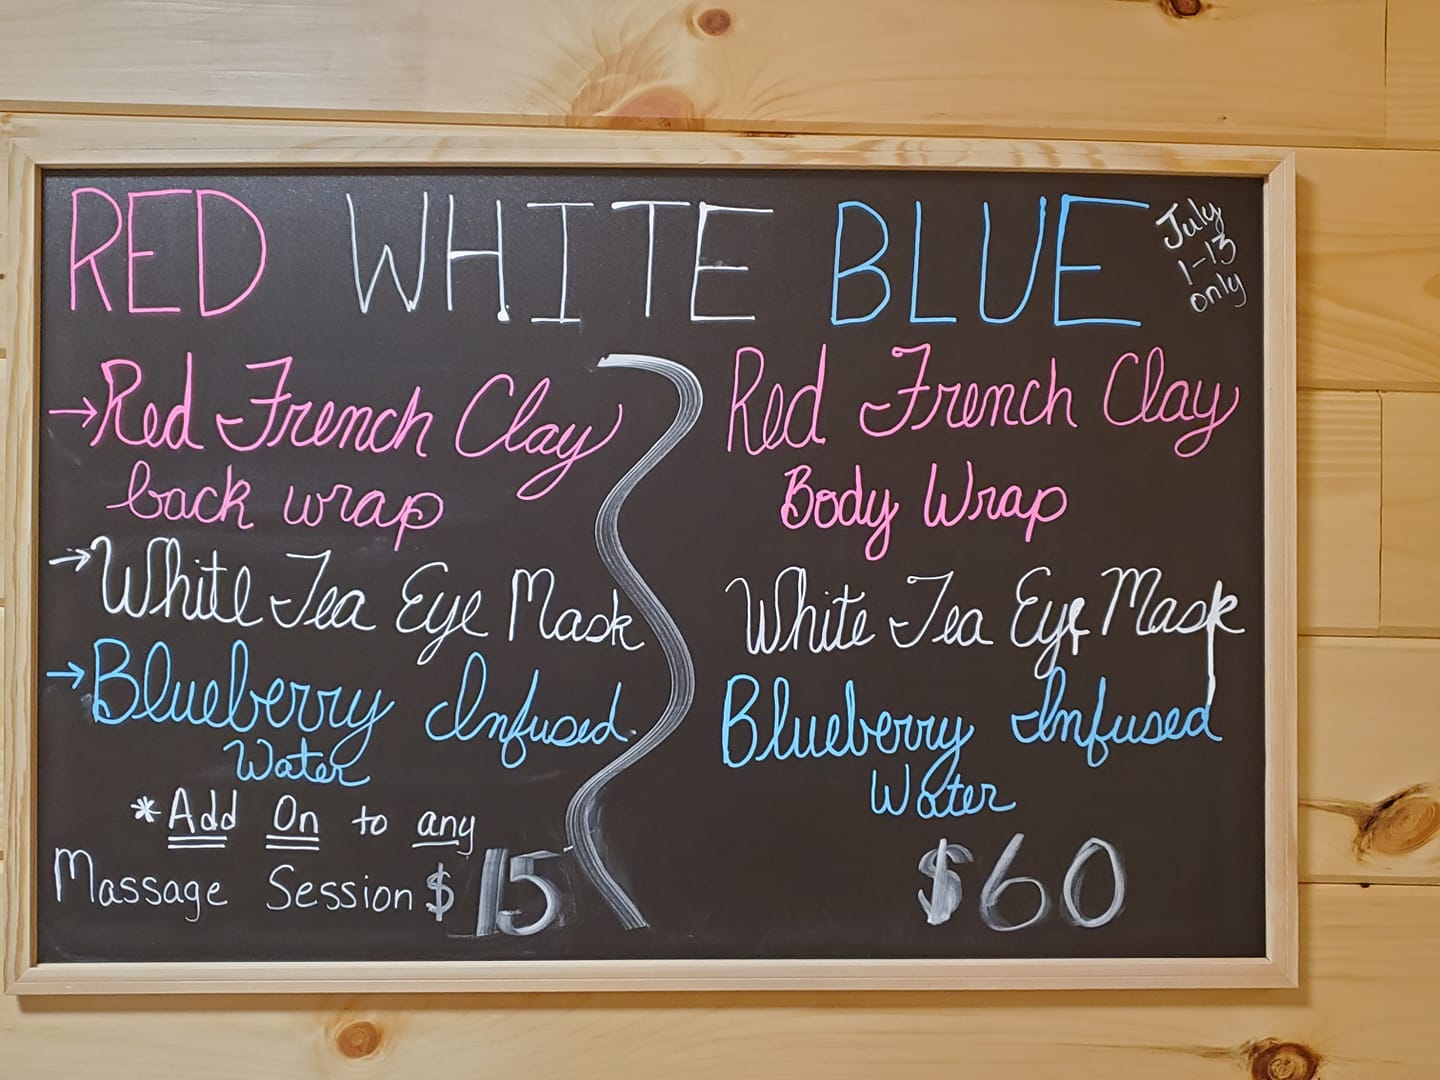 RED WHITE BLUE
July
1-13
only
→Red French Clay
back wrap
→White Tea Eye Mask
→Blueberry Infused
Water
*Add On to any
Massage Session $15
Red French Clay
Body Wrap
White Tea Eye Mask
Blueberry Infused
Water
$60